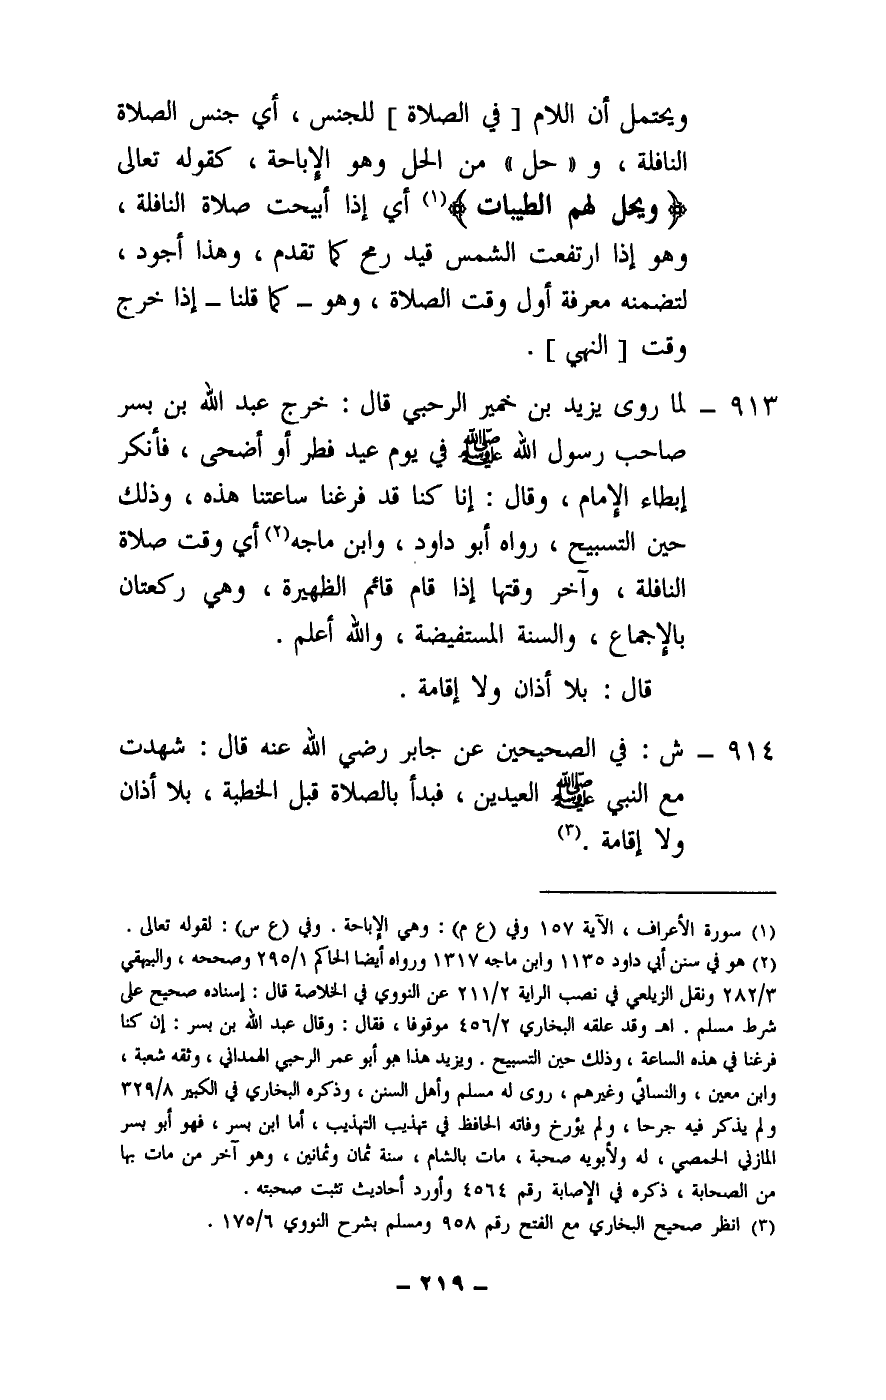 ويحتمل أن اللام [ في الصلاة ] للجنس ، أي جنس الصلاة
النافلة ، و « حل » من الحل وهو الإباحة ، كقوله تعالى
﴿ ويحل لهم الطيبات ﴾(١) أي إذا أبيحت صلاة النافلة ،
وهو إذا ارتفعت الشمس قيد رمح كما تقدم ، وهذا أجود ،
لتضمنه معرفة أول وقت الصلاة ، وهو ــ كما قلنا ــ إذا خرج
وقت [ النهي ] .
٩١٣ ــ لما روى يزيد بن خمير الرحبي قال : خرج عبد الله بن بسر
صاحب رسول الله ﷺ في يوم عيد فطر أو أضحى ، فأنكر
إبطاء الإمام ، وقال : إنا كنا قد فرغنا ساعتنا هذه ، وذلك
حين التسبيح ، رواه أبو داود ، وابن ماجه(٢) أي وقت صلاة
النافلة ، وآخر وقتها إذا قام قائم الظهيرة ، وهي ركعتان
بالإجماع ، والسنة المستفيضة ، والله أعلم .
قال : بلا أذان ولا إقامة .
٩١٤ ــ ش : في الصحيحين عن جابر رضي الله عنه قال : شهدت
مع النبي ﷺ العيدين ، فبدأ بالصلاة قبل الخطبة ، بلا أذان
ولا إقامة .(٣)
(١) سورة الأعراف ، الآية ١٥٧ وفي (ع م) : وهي الإباحة . وفي (ع س) : لقوله تعالى .
(٢) هو في سنن أبي داود ١١٣٥ وابن ماجه ١٣١٧ ورواه أيضا الحاكم ٢٩٥/١ وصححه ، والبيهقي
٢٨٢/٣ ونقل الزيلعي في نصب الراية ٢١١/٢ عن النووي في الخلاصة قال : إسناده صحيح على
شرط مسلم . اهـ وقد علقه البخاري ٤٥٦/٢ موقوفا ، فقال : وقال عبد الله بن بسر : إن كنا
فرغنا في هذه الساعة ، وذلك حين التسبيح . ويزيد هذا هو أبو عمر الرحبي الهمداني ، وثقه شعبة ،
وابن معين ، والنسائي وغيرهم ، روى له مسلم وأهل السنن ، وذكره البخاري في الكبير ٣٢٩/٨
ولم يذكر فيه جرحا ، ولم يؤرخ وفاته الحافظ في تهذيب التهذيب ، أما ابن بسر ، فهو أبو بسر
المازني الحمصي ، له ولأبويه صحبة ، مات بالشام ، سنة ثمان وثمانين ، وهو آخر من مات بها
من الصحابة ، ذكره في الإصابة رقم ٤٥٦٤ وأورد أحاديث تثبت صحبته .
(٣) انظر صحيح البخاري مع الفتح رقم ٩٥٨ ومسلم بشرح النووي ١٧٥/٦ .
ــ ٢١٩ ــ